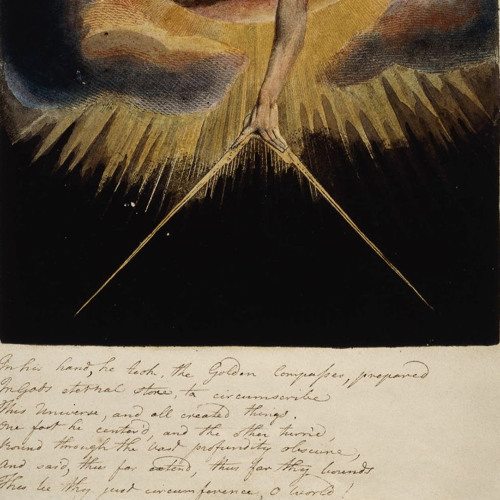 In his hand, he took the Golden Compasses, prepared
In Gods eternal store, to circumscribe
This Universe, and all created things.
One foot he center'd, and the other turn'd,
Round through the vast profundity obscure,
And said, thus far extend, thus far thy bounds
This be thy just circumference, O World!